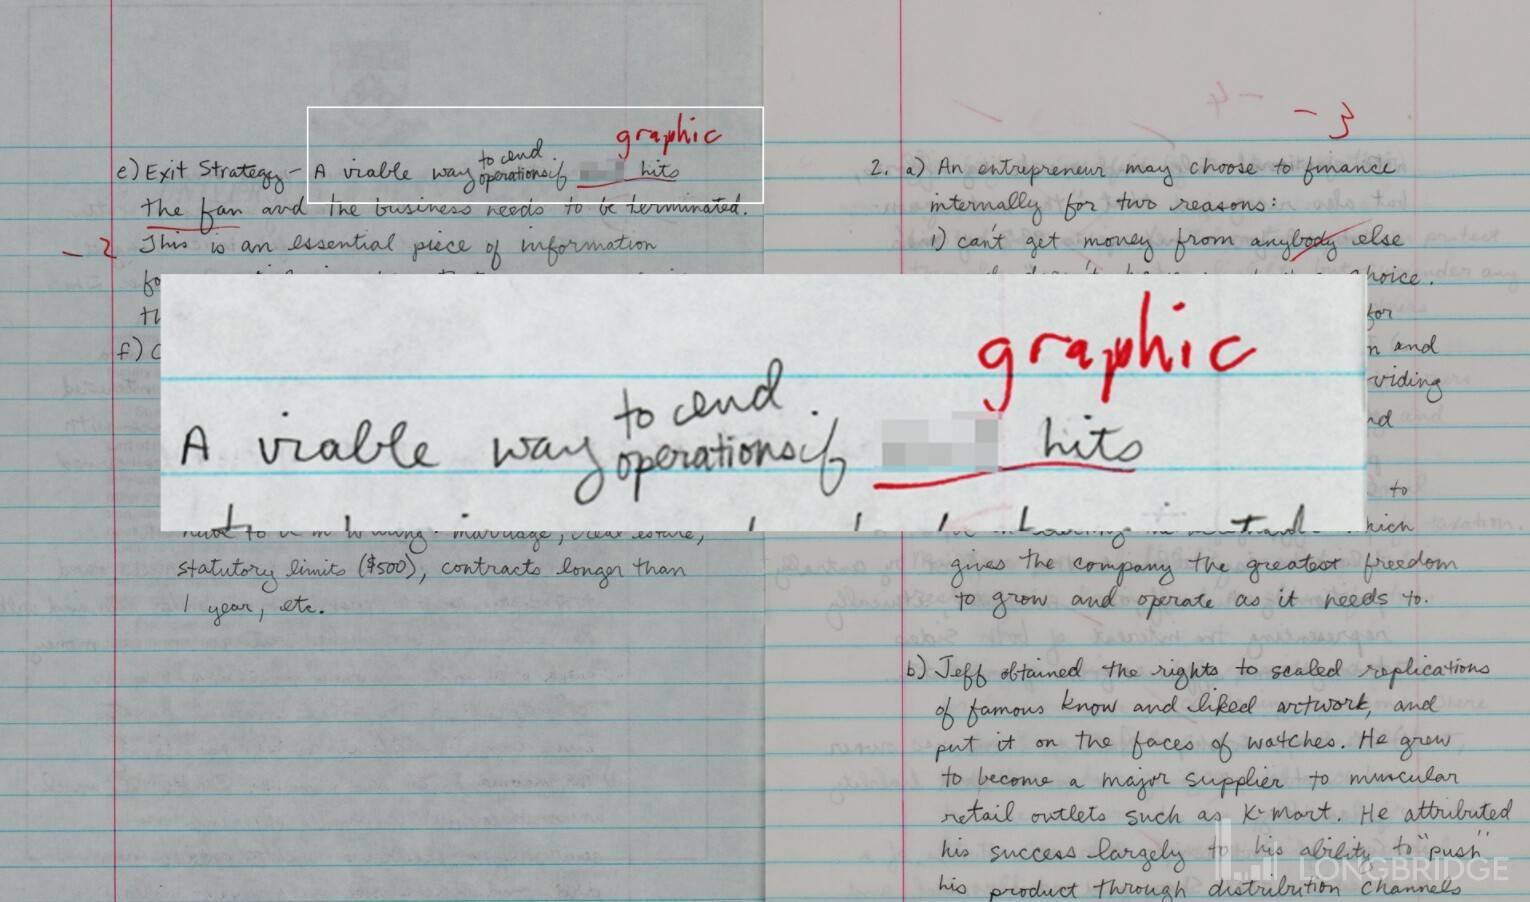 graphic
e) Exit Strategy - A viable way to end operations if hits
the fan and the business needs to be terminated.
- 2 This is an essential piece of information
fo
th
f) C
graphic
A viable way to end operations if hits
have to be in writing: marriage, real estate,
statutory limits ($500), contracts longer than
1 year, etc.
- 3
2. a) An entrepreneur may choose to finance
internally for two reasons:
1) can't get money from anybody else
choice.
for
n and
viding
nd
to
which
gives the company the greatest freedom
to grow and operate as it needs to.
b) Jeff obtained the rights to scaled replications
of famous know and liked artwork, and
put it on the faces of watches. He grew
to become a major supplier to muscular
retail outlets such as K-mart. He attributed
his success largely to his ability to "push"
his product through distribution channels
LONGBRIDGE